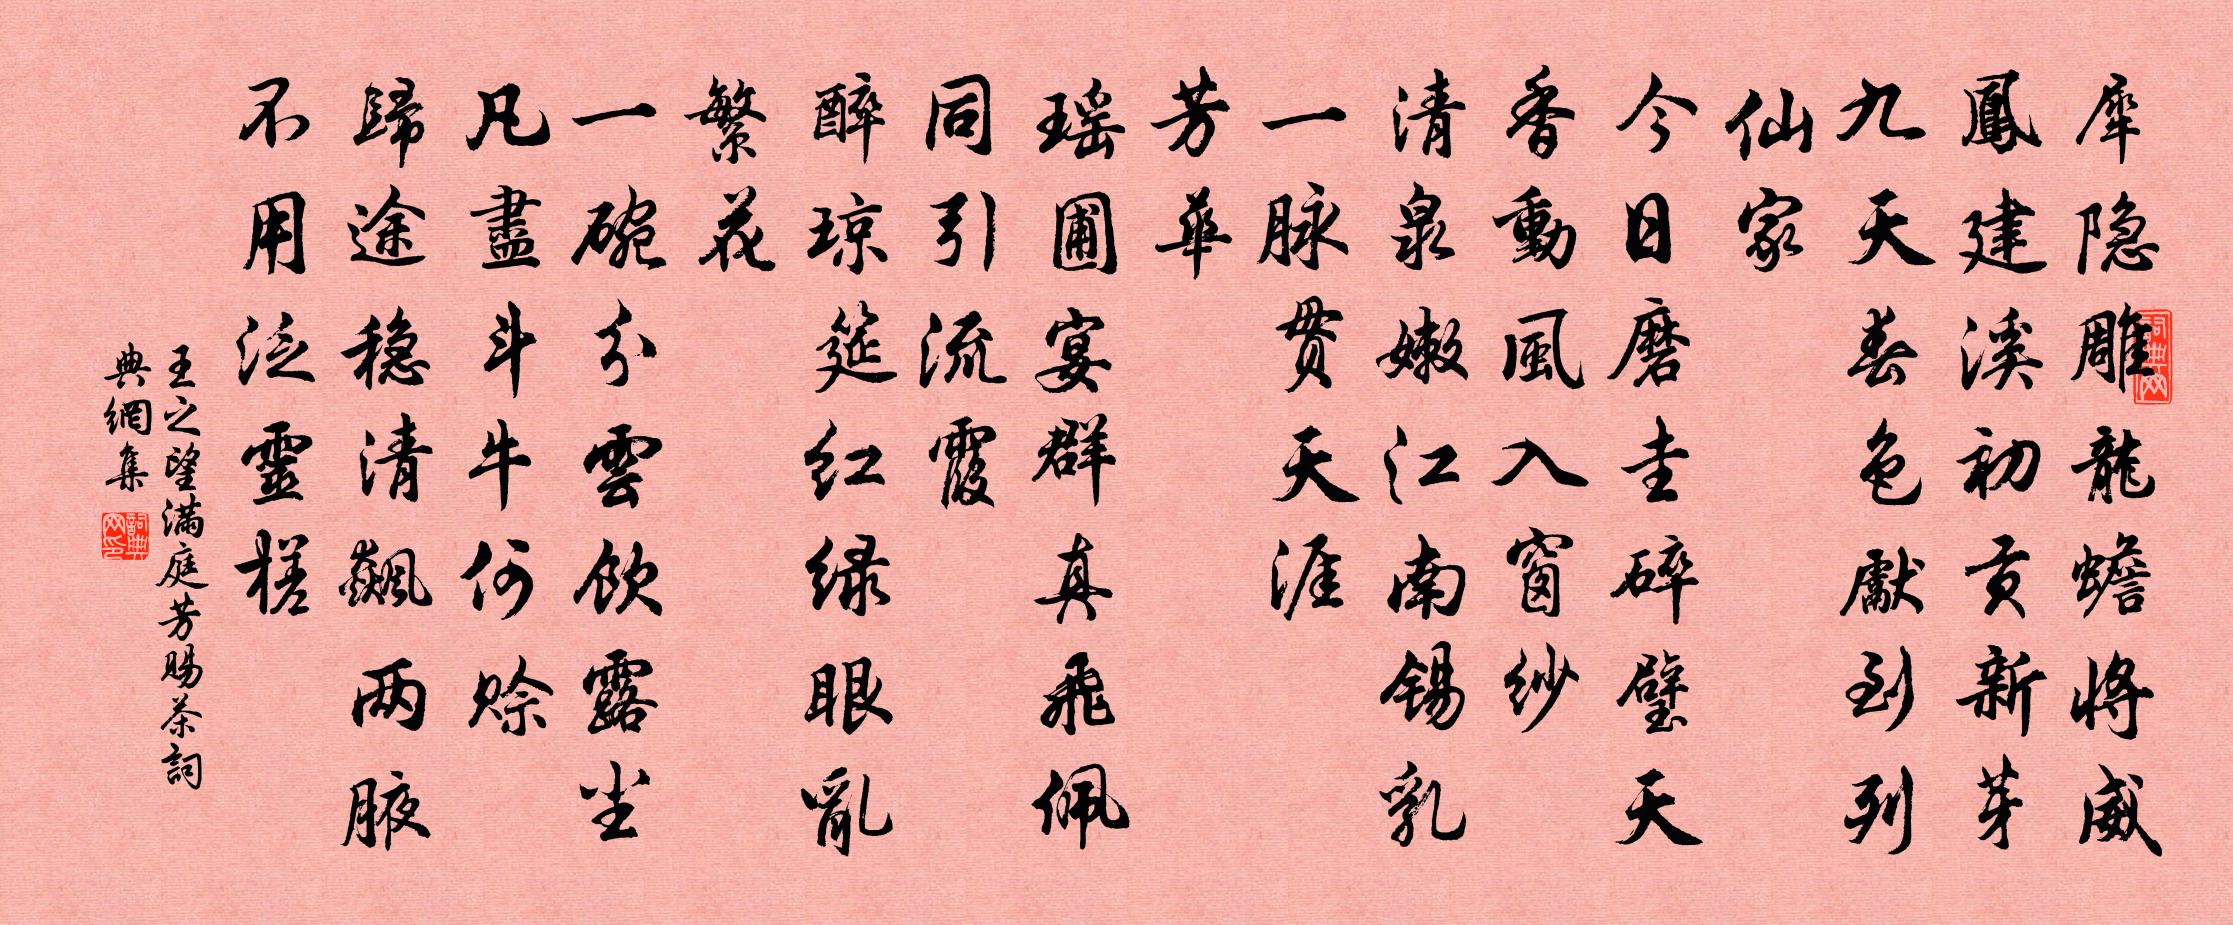 犀隐雕龍蟾將威
鳳建溪初貢新芽
九天春色獻到列
仙家
今日磨圭碎璧天
香動風入窗紗
清泉嫩江南锡乳
一脉贯天涯
芳華
瑶圃宴群真飛佩
同引流霞
醉琼筵红绿眼亂
繁花
一碗分雲飲露尘
凡盡斗牛何赊
歸途稳清飆两腋
不用泛靈槎
王之望满庭芳賜茶詞
典網集
詞典网
詞典网印